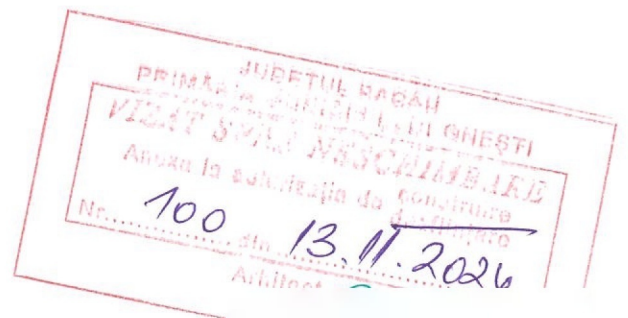 JUDEȚUL BACĂU
PRIMĂRIA
VIZAT SPRE NESCHIMBARE
Anexa la autorizația de construire
desființare
Nr. 100 din 13.11.202
Arhitect